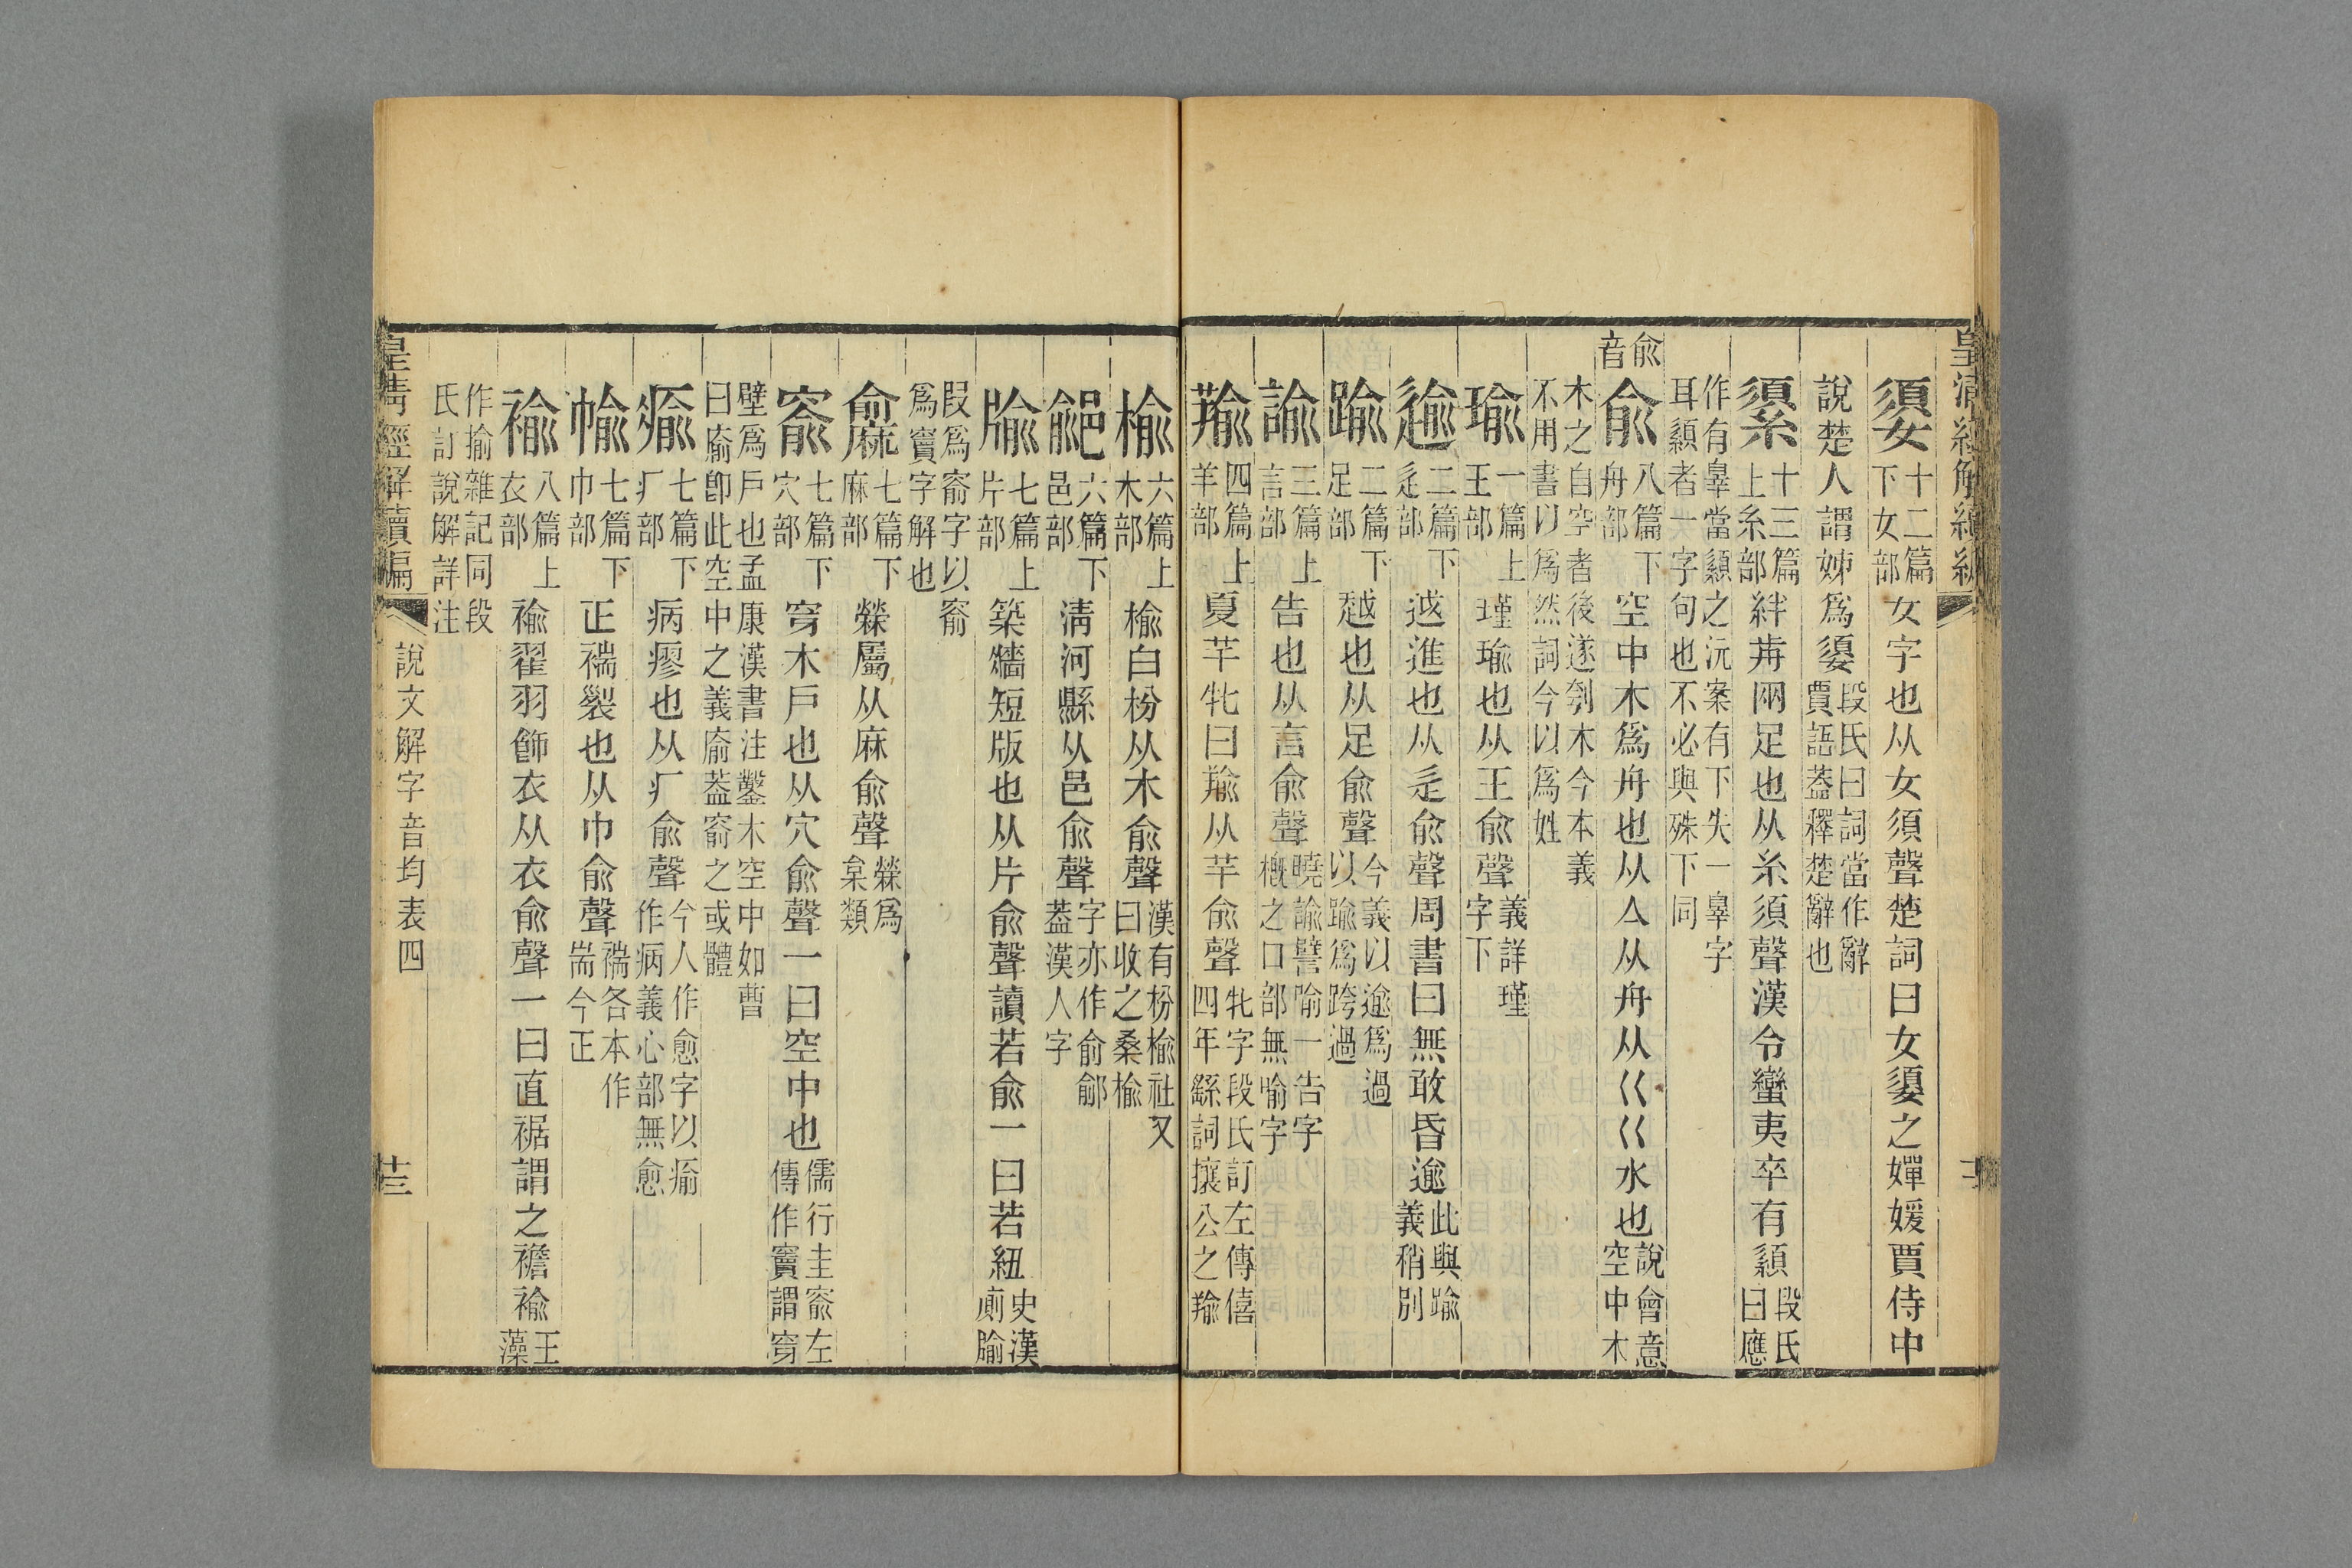 嬃十二篇下女部女字也从女須聲楚詞曰女嬃之嬋媛賈侍中
說楚人謂姊爲嬃段氏曰詞當作辭賈語葢釋楚辭也
䇓十三篇上糸部絆歬兩足也从糸須聲漢令蠻夷卒有䇓段氏曰應
作有辠當䇓之沅案有下失一辠字耳䇓者一字句也不必與殊下同
兪音
兪八篇下舟部空中木爲舟也从亼从舟从巜巜水也說會意空中木
木之自空者後遂刳木今本義不用書以爲然詞今以爲姓
瑜一篇上王部瑾瑜也从王兪聲義詳瑾字下
逾二篇下辵部䢲進也从辵兪聲周書曰無敢昏逾此與踰義稍別
踰二篇下足部越也从足兪聲今義以逾爲過以踰爲跨過
諭三篇上言部告也从言兪聲曉諭譬喻一告字槪之口部無喻字
羭四篇上羊部夏羊牝曰羭从羊兪聲牝字段氏訂左傳僖四年繇詞攘公之羭
楡六篇上木部楡白枌从木兪聲漢有枌楡社又曰收之桑楡
鄃六篇下邑部淸河縣从邑兪聲字亦作俞鄃葢漢人字
牏七篇上片部築牆短版也从片兪聲讀若兪一曰若紐史漢廁牏
叚爲窬字以窬爲竇字解也
䵉七篇下麻部檾屬从麻兪聲檾爲枲類
窬七篇下穴部穿木戶也从穴兪聲一曰空中也儒行圭窬左傳作竇謂穿
壁爲戶也孟康漢書注鑿木空中如曹曰廥卽此空中之義廥葢窬之或體
瘉七篇下疒部病瘳也从疒兪聲今人作愈字以瘉作病義心部無愈
㡏七篇下巾部正褍裂也从巾兪聲褍各本作耑今正
褕八篇上衣部褕翟羽飾衣从衣兪聲一曰直裾謂之襜褕王藻
作揄雜記同段氏訂說解詳注
皇淸經解續編
說文解字音均表四